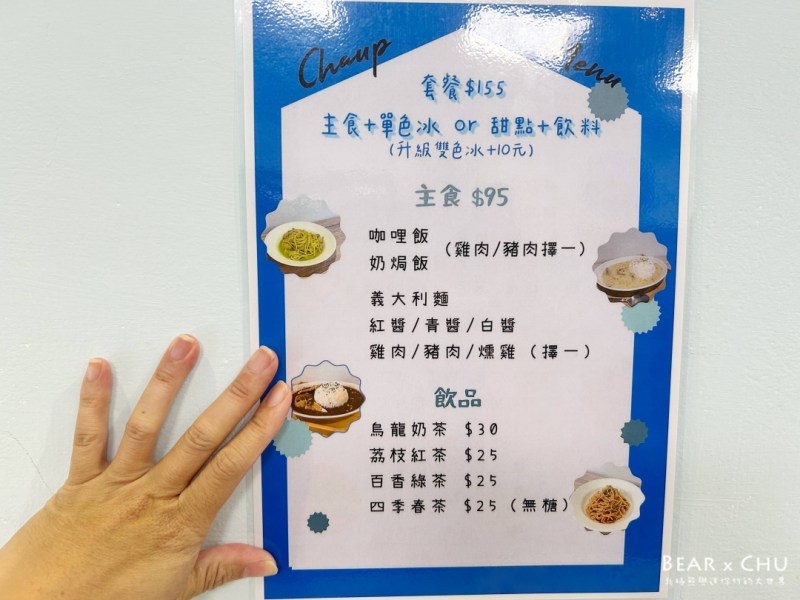 Chaup Menu
套餐$155
主食+單色冰 or 甜點+飲料
(升級雙色冰+10元)
主食 $95
咖哩飯
奶焗飯
(雞肉/豬肉擇一)
義大利麵
紅醬/青醬/白醬
雞肉/豬肉/燻雞 (擇一)
飲品
烏龍奶茶 $30
荔枝紅茶 $25
百香綠茶 $25
四季春茶 $25 (無糖)
BEAR x CHU